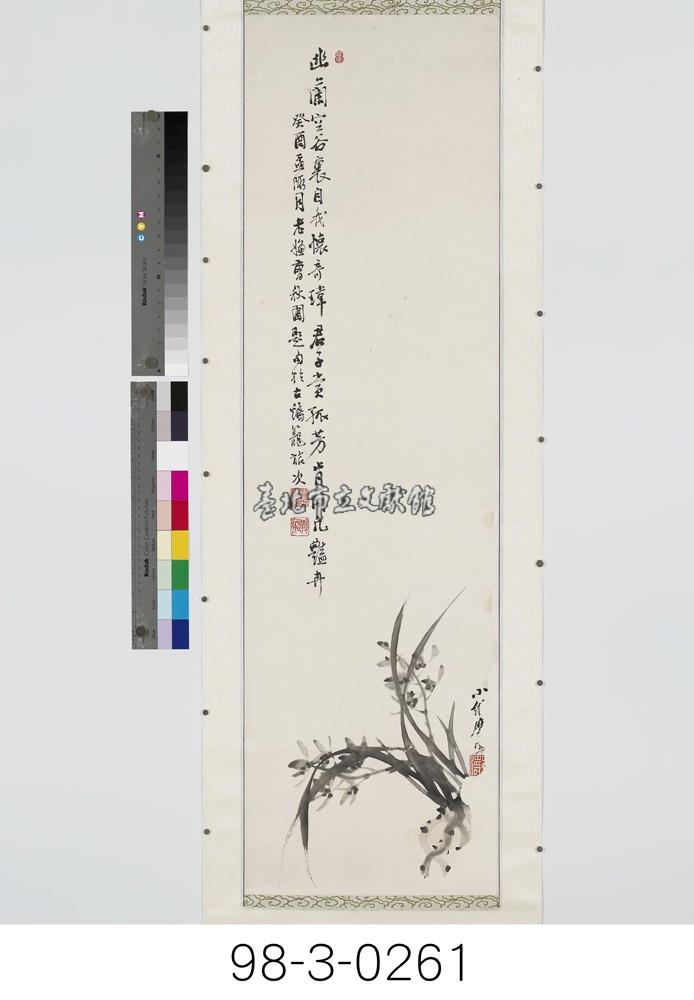 幽蘭空谷裏自我懷奇瑋君子賞孤芳肯同凡豔卉
癸酉孟陬月老漁曹秋圃題句於古鴻麓旅次
小
臺北市立文獻館
Kodak Gray Scale
C Y M
Kodak Color Control Patches
98-3-0261